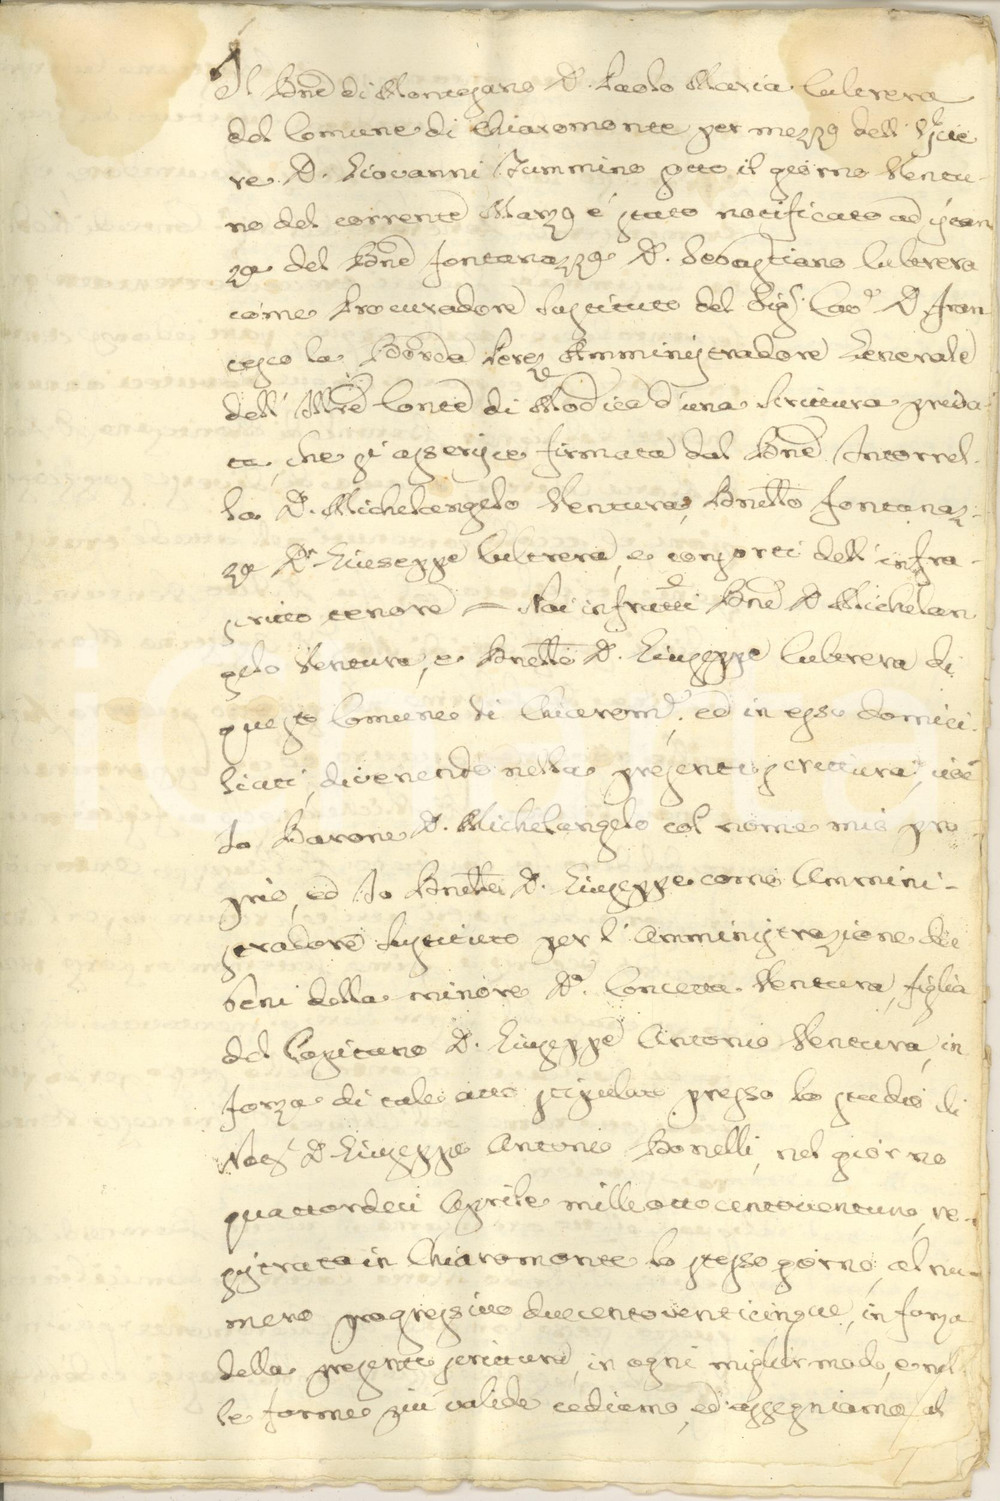 Il Bne di Montegano D. Paolo Maria Cultrera
del Comune di Chiaromonte per mezzo dell' Uscie
re D. Giovanni Iummino sotto il giorno Ventu-
no del corrente Marzo è stato notificato ad istan
za del Bne Fontanazza D. Sebastiano Cultrera
come Procuradore Sustituto del Sigr. D. Fran
cesco la Perez Amministradore Generale
dell' Illre Conte di Modica d'una Scrittura priva-
ta, che si asserisce firmata dal Bne Intorrel-
la D. Michelangelo Ventura, Bnello Fontanaz-
za Dn Giuseppe Cultrera, e consorti dell' infra-
scritto tenore — Noi infratti Bne D. Michelan
gelo Ventura, e Bnello D. Giuseppe Cultrera di
questo Comune di Chiaromte, ed in esso domici-
liati, divenendo nella presente scrittura, cioè
Io Barone D. Michelangelo col nome mio pro-
prio, ed Io Bnello D. Giuseppe come Ammini-
stradore Sustituto per l'amministrazione dei
beni della minore Da. Concetta Ventura, figlia
del Capitano D. Giuseppe Antonio Ventura, in
forza di tale atto stipulato presso lo studio di
Nor. D. Giuseppe Antonio Bonelli, nel giorno
quattordeci Aprile mille ottocentoventuno, re-
gistrato in Chiaromonte lo stesso giorno, al nu-
mero progressivo duecentoventicinque, in forza
della presente scrittura, in ogni miglior modo, e nel
le forme più valide cediamo, ed assegniamo al